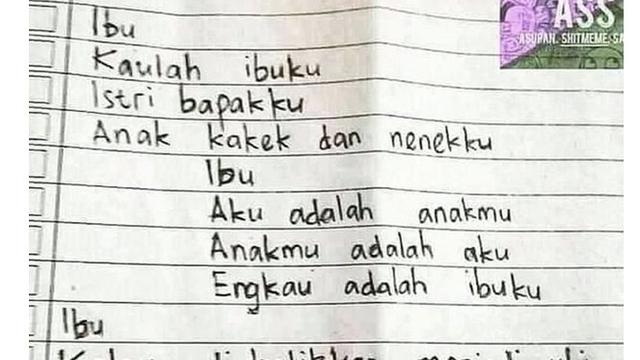 ASS
ASUPAN. SHITMEME. SA
Ibu
Kaulah ibuku
Istri bapakku
Anak kakek dan nenekku
Ibu
Aku adalah anakmu
Anakmu adalah aku
Engkau adalah ibuku
Ibu